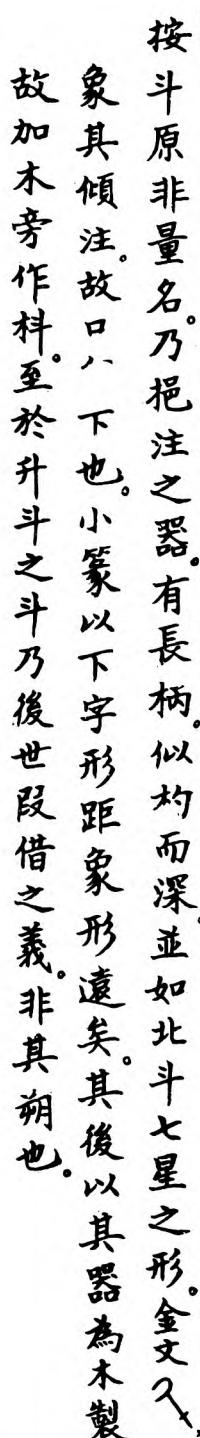 按斗原非量名。乃挹注之器。有長柄。似杓而深。並如北斗七星之形。金文
象其傾注。故口八下也。小篆以下字形距象形遠矣。其後以其器為木製
故加木旁作枓。至於升斗之斗乃後世叚借之義。非其朔也。